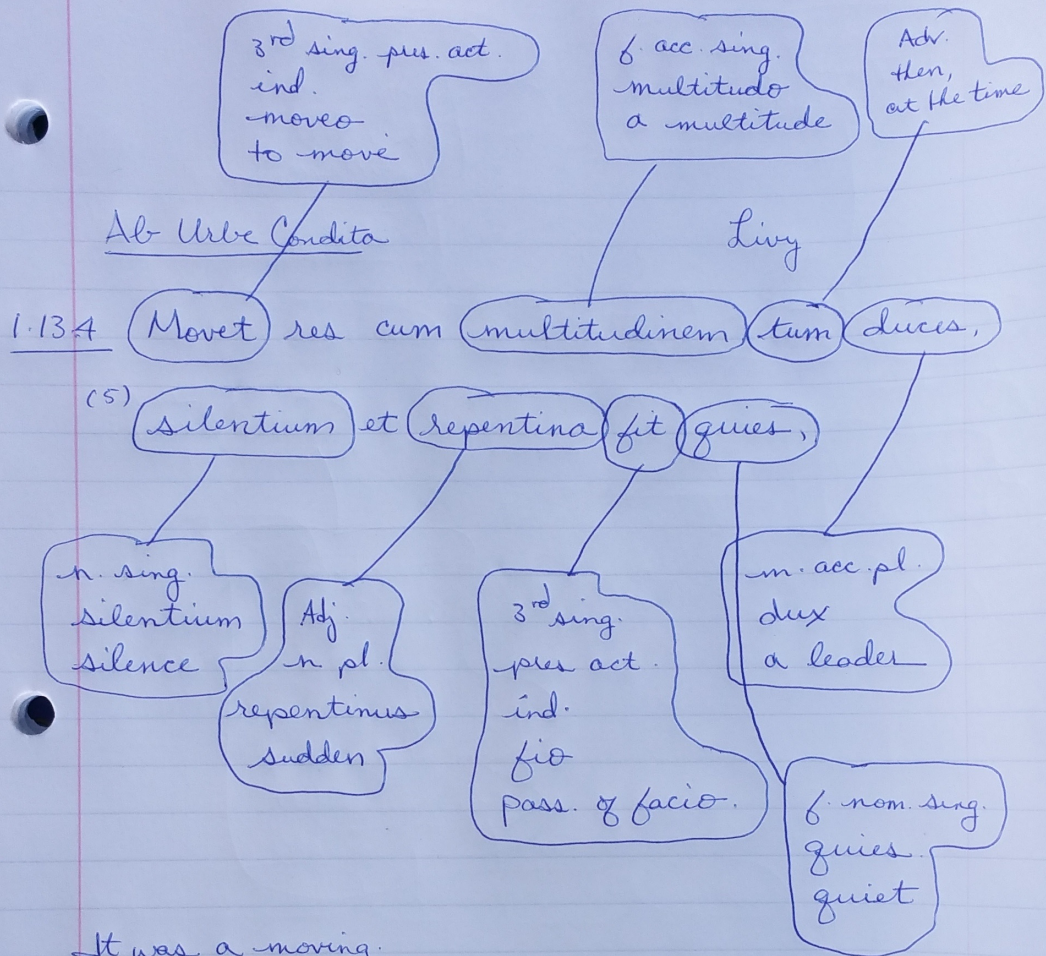 3rd sing. pres. act.
ind.
moveo
to move
f. acc. sing.
multitudo
a multitude
Adv.
then,
at the time
Ab Urbe Condita
Livy
1.13.4 Movet res cum multitudinem tum duces,
(5) silentium et repentina fit quies,
n. sing.
silentium
silence
Adj.
n pl.
repentinus
sudden
3rd sing.
pres act.
ind.
fio
pass. of facio.
m. acc. pl.
dux
a leader
f. nom. sing.
quies
quiet
It was a moving.